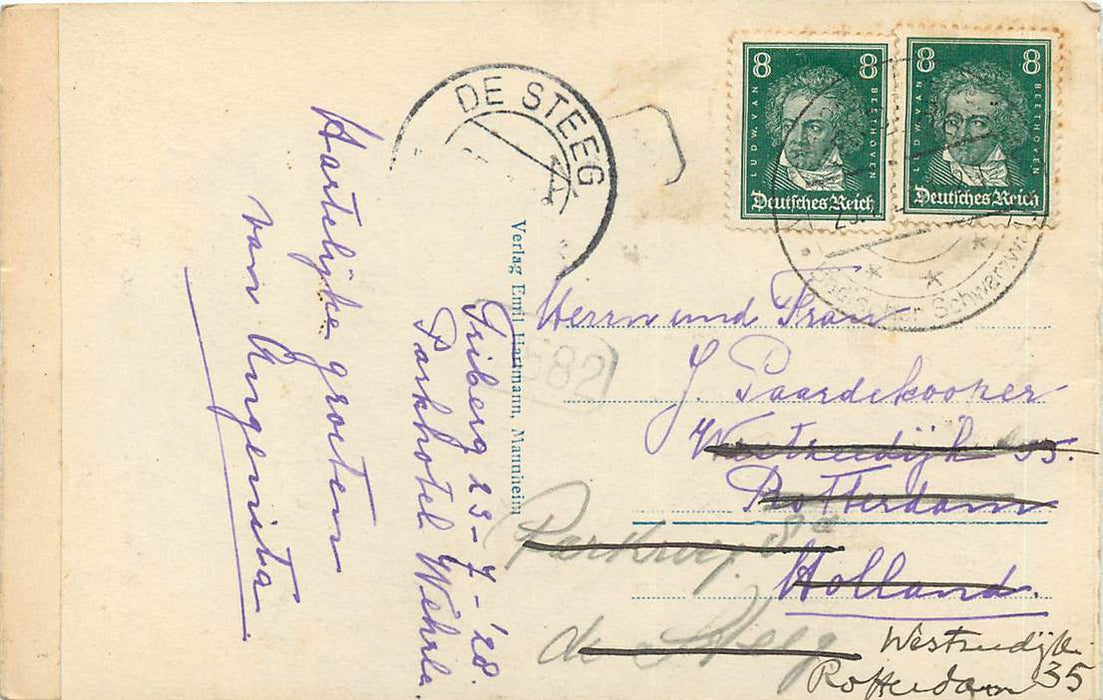 Hartelijke groeten
van Angenita.
Triberg 23-7-'28.
Parkhotel Wehrle.
Verlag Emil Hartmann, Mannheim
DE STEEG
582
8 8
LUDW. VAN BEETHOVEN
Deutsches Reich
8 8
LUDW. VAN BEETHOVEN
Deutsches Reich
Schwarzw
Herrn und Frau
J. Paardekooper
Westzeedijk 35.
Rotterdam
Holland.
Parkweg 8a
de Steeg
Westzeedijk
35
Rotterdam